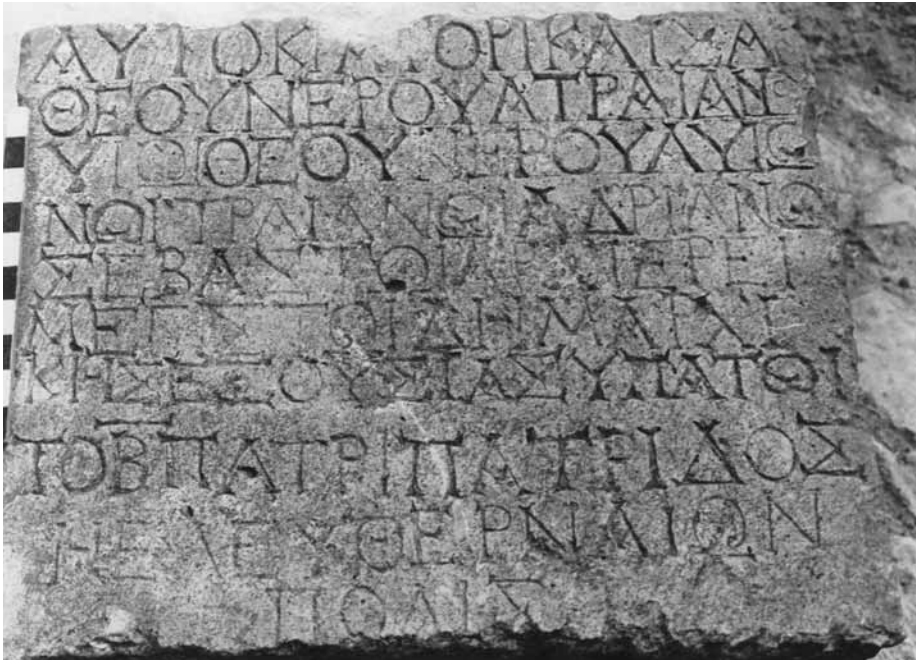 ΑΥΤΟΚΡΑΤΟΡΙΚΑΙΣΑ
ΘΕΟΥΝΕΡΟΥΑΤΡΑΙΑΝΟ
ΥΙΩΙΘΕΟΥΝΕΡΟΥΑΥΙΩ
ΝΩΙΤΡΑΙΑΝΩΙΑΔΡΙΑΝΩ
ΣΕΒΑΣΤΩΙΑΡΧΙΕΡΕΙ
ΜΕΓΙΣΤΩΙΔΗΜΑΡΧΙ
ΚΗΣΕΞΟΥΣΙΑΣΥΠΑΤΩΙ
ΤΟΒ̅ΠΑΤΡΙΠΑΤΡΙΔΟΣ
ΗΕΛΕΥΘΕΡΝΑΙΩΝ
ΠΟΛΙΣ